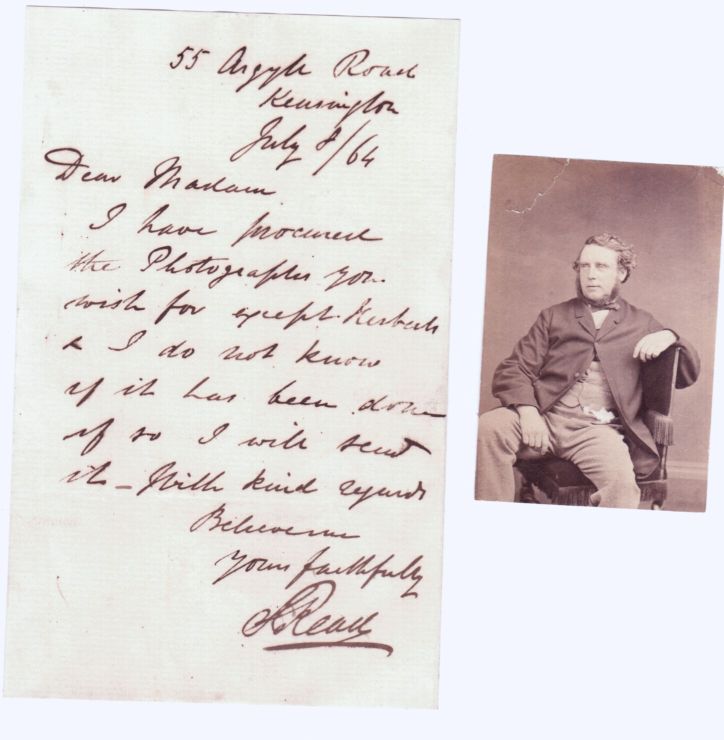 55 Argyle Road
Kensington
July 8/64
Dear Madam
I have procured
the Photographs you
wish for except Herberts
& I do not know
if it has been done
if so I will send
it – With kind regards
Believe me
Yours faithfully
S Read